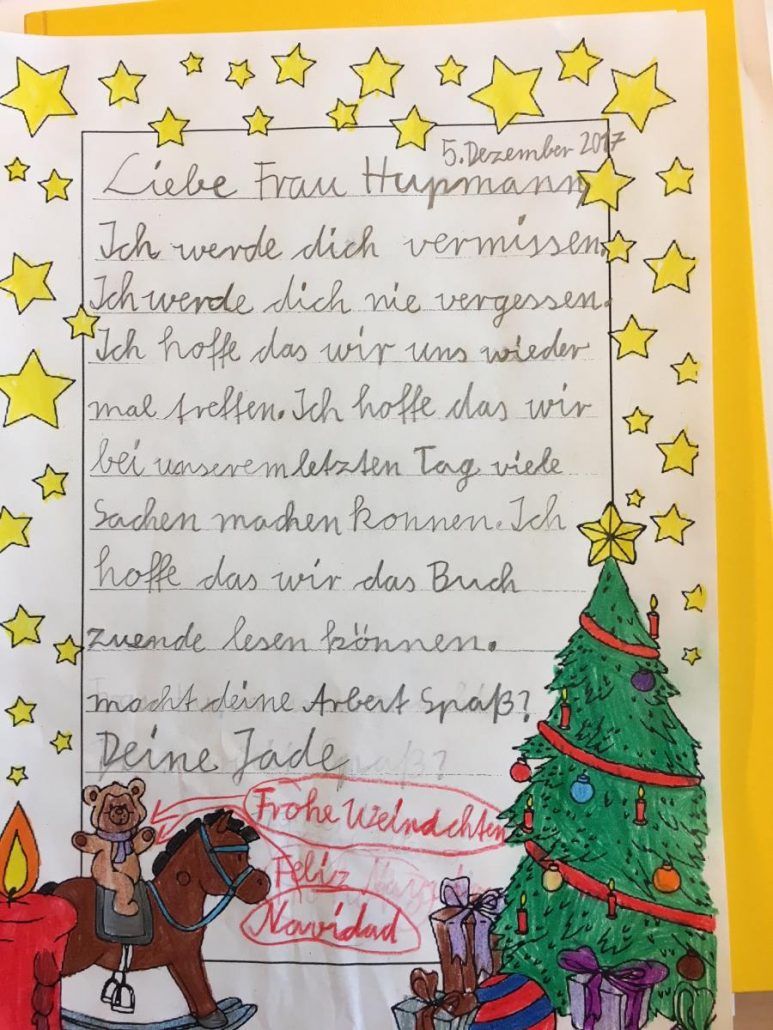 5. Dezember 2017
Liebe Frau Hupmann
Ich werde dich vermissen.
Ich werde dich nie vergessen.
Ich hoffe das wir uns wieder
mal treffen. Ich hoffe das wir
bei unserem letzten Tag viele
Sachen machen konnen. Ich
hoffe das wir das Buch
zuende lesen können.
macht deine Arbeit Spaß?
Deine Jade
Frohe Weinachten
Feliz
Navidad